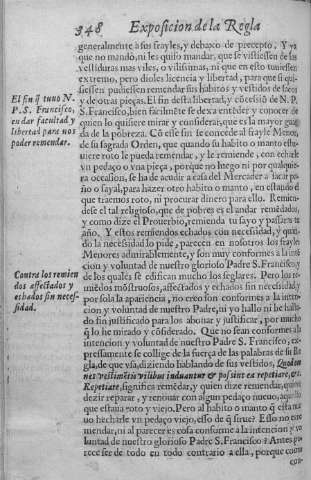 348 Exposicion de la Regla
generalmente à sus frayles, y debaxo de precepto. Y ya
que no mando, ni les quiso mandar, que se vistiessen de las
vestiduras mas viles, o vilissimas, ni que en esto tuuiessen
extremo, pero dioles licencia y libertad, para que si qui-
siessen pudiessen remendar sus habitos y vestidos de sacos
y de otras pieças. El fin desta libertad, y cõcesiõ de N. P.
S. Francisco, bien facilmente se dexa entẽder y conocer de
quien lo quisiere mirar y considerar, que es la mayor guar
da de la pobreza. Cõ esse fin se concede al frayle Menor,
de su sagrada Orden, que quando su habito o manto estu-
uiere roto le pueda remendar, y le remiende, con echarle
vn pedaço o vna pieça, porque no luego ni por qualquie-
ra occasion, se ha de acudir a casa del Mercader a sacar pa-
ño o sayal, para hazer otro habito o manto, en estando el
que traemos roto, ni procurar dinero para ello. Remien-
dese el tal religioso, que de pobres es el andar remẽdados,
y como dize el Prouerbio, remienda tu sayo y passara tu
año. Y estos remiendos echados con necessidad, y quan-
do la necessidad lo pide, parecen en nosotros los frayles
Menores admirablemente, y son muy conformes a la inten
cion y voluntad de nuestro glorioso Padre S. Francisco, y
de los quales se edifican mucho los seglares. Pero los re-
miẽdos mõstruosos, affectados y echados sin necessidad y
por sola la apariencia, no creo son conformes a la inten-
cion y voluntad de nuestro Padre, ni yo hallo ni he halla-
do sin justificado para los abonar y justificar, por mucho
q̃ lo he mirado y cõsiderado. Que no sean conformes a la
intencion y voluntad de nuestro Padre S. Francisco, ex-
pressamente se collige de la fuerça de las palabras de su Re
gla, de que vsa, diziendo hablando de sus vestidos, Quod om
nes vestimẽtis vilibus induantur & possint ea repetiare, &c.
Repetiare, significa remẽdar, y quien dize remendar, quiere
dezir reparar, y renouar con algun pedaço nueuo, aquello
que estaua roto y viejo. Pero al habito o manto q̃ esta nue
uo hecharle vn pedaço viejo, esso de q̃ sirue? Esso no es re
mendar, ni al parecer es cosa conforme a la intencion y vo
luntad de nuestro glorioso Padre S. Francisco? Antes pa-
rece ser de todo en todo contrario a ella, porque como
con-
El fin q̃ tuuo N.
P. S. Francisco,
en dar facultad y
libertad para nos
poder remendar.
Contra los remien
dos affectados y
echados sin neces-
sidad.